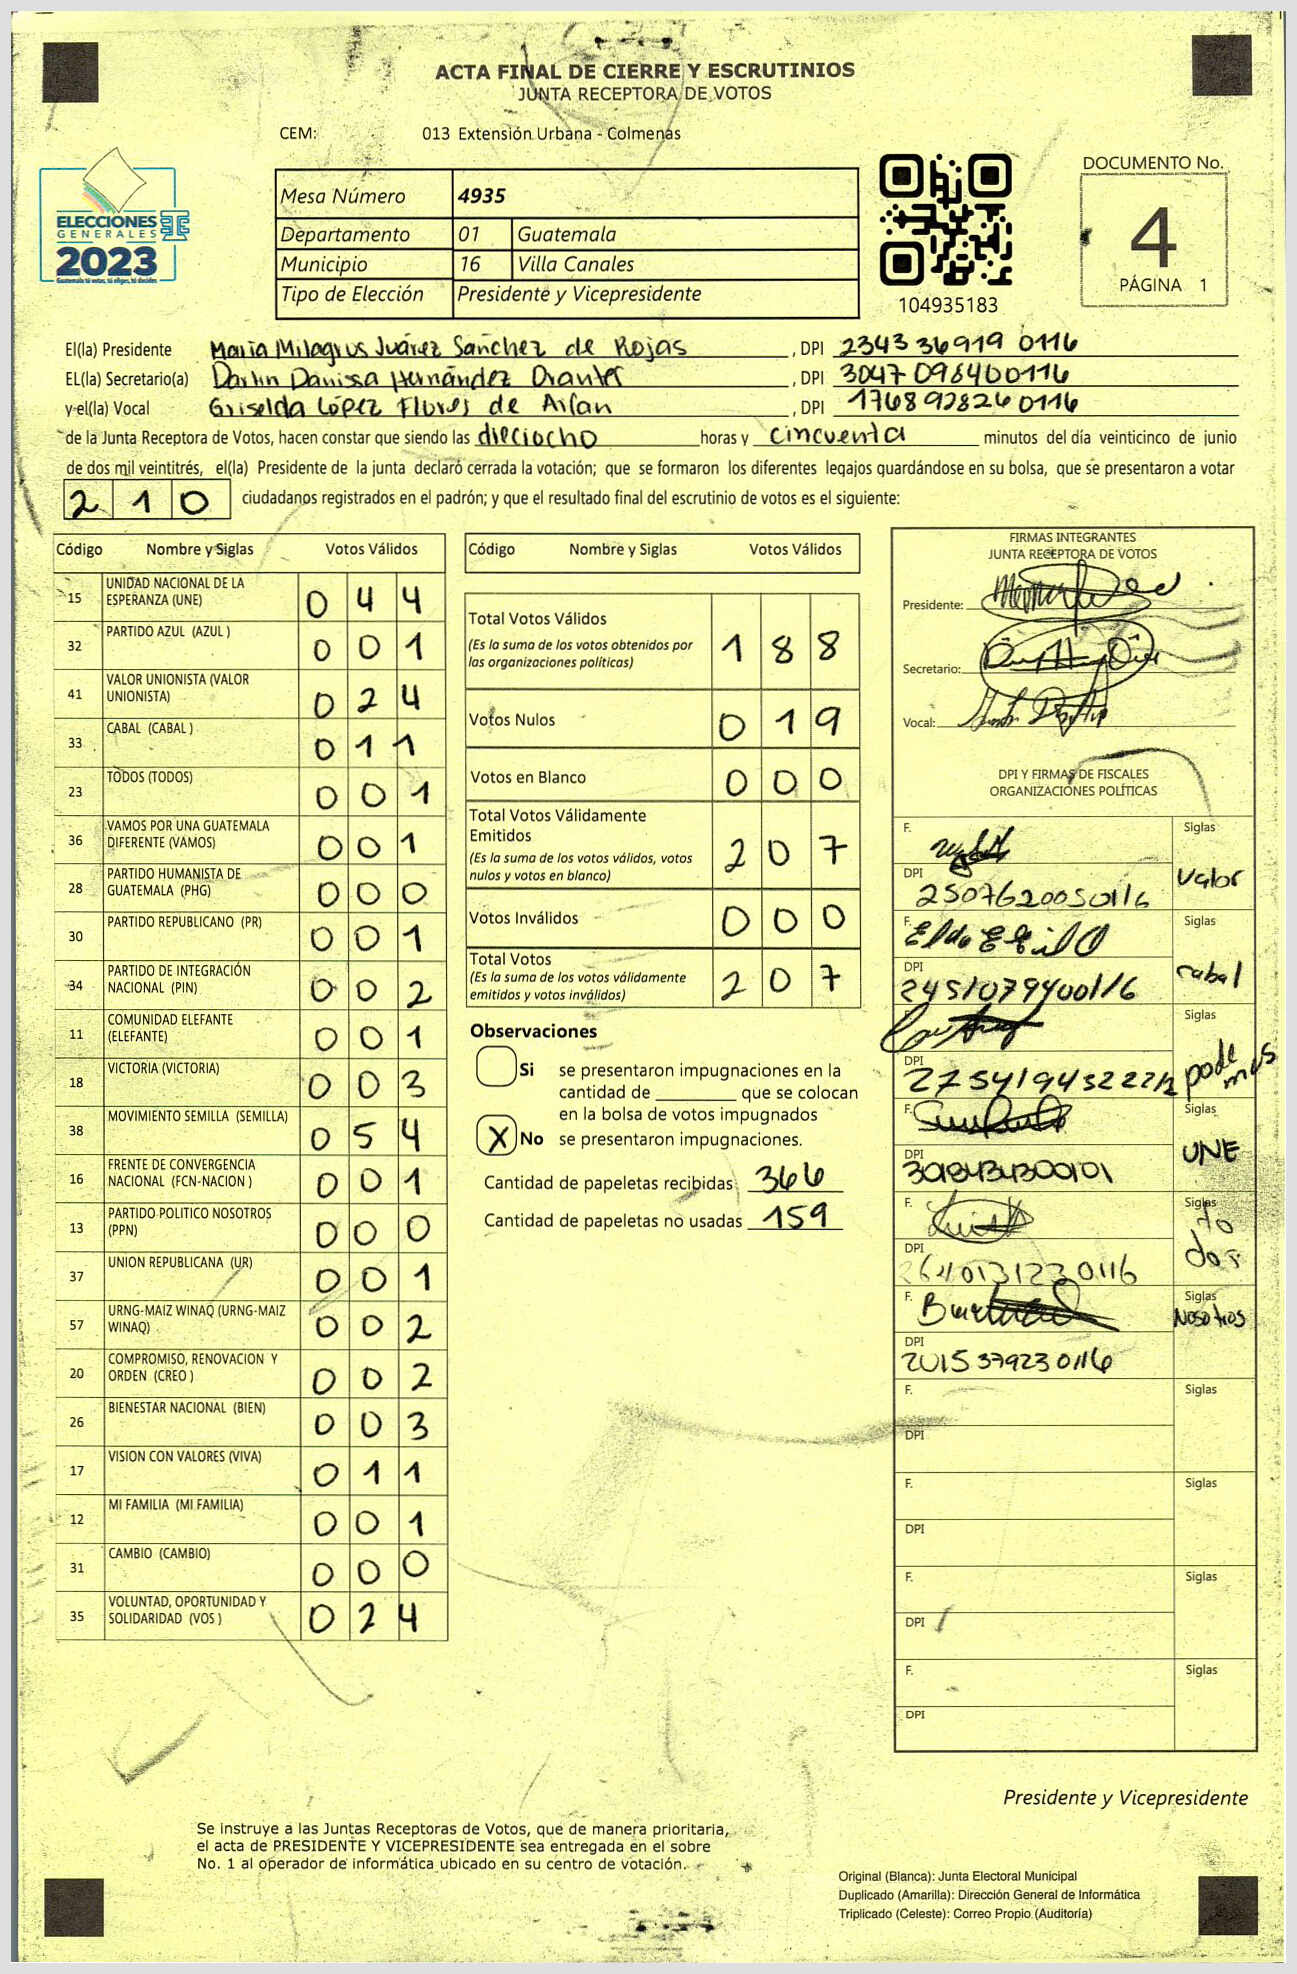 ACTA FINAL DE CIERRE Y ESCRUTINIOS
JUNTA RECEPTORA DE VOTOS
CEM: 013 Extensión Urbana - Colmenas
ELECCIONES
GENERALES
2023
Guatemala tú votas, tú eliges, tú decides
Mesa Número 4935
Departamento 01 Guatemala
Municipio 16 Villa Canales
Tipo de Elección Presidente y Vicepresidente
104935183
DOCUMENTO No.
4
PÁGINA 1
El(la) Presidente María Milagros Juárez Sánchez de Rojas , DPI 2343 36919 0116
EL(la) Secretario(a) Darlin Danissa Hernández Orantes , DPI 3047 09840 0116
y el(la) Vocal Griselda López Flores de Arfan , DPI 1768 92826 0116
de la Junta Receptora de Votos, hacen constar que siendo las dieciocho horas y cincuenta minutos del día veinticinco de junio
de dos mil veintitrés, el(la) Presidente de la junta declaró cerrada la votación; que se formaron los diferentes legajos guardándose en su bolsa, que se presentaron a votar
210 ciudadanos registrados en el padrón; y que el resultado final del escrutinio de votos es el siguiente:
Código Nombre y Siglas Votos Válidos
15 UNIDAD NACIONAL DE LA ESPERANZA (UNE) 044
32 PARTIDO AZUL (AZUL ) 001
41 VALOR UNIONISTA (VALOR UNIONISTA) 024
33 CABAL (CABAL ) 011
23 TODOS (TODOS) 001
36 VAMOS POR UNA GUATEMALA DIFERENTE (VAMOS) 001
28 PARTIDO HUMANISTA DE GUATEMALA (PHG) 000
30 PARTIDO REPUBLICANO (PR) 001
34 PARTIDO DE INTEGRACIÓN NACIONAL (PIN) 002
11 COMUNIDAD ELEFANTE (ELEFANTE) 001
18 VICTORIA (VICTORIA) 003
38 MOVIMIENTO SEMILLA (SEMILLA) 054
16 FRENTE DE CONVERGENCIA NACIONAL (FCN-NACION ) 001
13 PARTIDO POLITICO NOSOTROS (PPN) 000
37 UNION REPUBLICANA (UR) 001
57 URNG-MAIZ WINAQ (URNG-MAIZ WINAQ) 002
20 COMPROMISO, RENOVACION Y ORDEN (CREO ) 002
26 BIENESTAR NACIONAL (BIEN) 003
17 VISION CON VALORES (VIVA) 011
12 MI FAMILIA (MI FAMILIA) 001
31 CAMBIO (CAMBIO) 000
35 VOLUNTAD, OPORTUNIDAD Y SOLIDARIDAD (VOS ) 024
Código Nombre y Siglas Votos Válidos
Total Votos Válidos 188
(Es la suma de los votos obtenidos por
las organizaciones políticas)
Votos Nulos 019
Votos en Blanco 000
Total Votos Válidamente
Emitidos 207
(Es la suma de los votos válidos, votos
nulos y votos en blanco)
Votos Inválidos 000
Total Votos 207
(Es la suma de los votos válidamente
emitidos y votos inválidos)
Observaciones
Si se presentaron impugnaciones en la
cantidad de ________ que se colocan
en la bolsa de votos impugnados
X No se presentaron impugnaciones.
Cantidad de papeletas recibidas 366
Cantidad de papeletas no usadas 159
FIRMAS INTEGRANTES
JUNTA RECEPTORA DE VOTOS
Presidente:
Secretario:
Vocal:
DPI Y FIRMAS DE FISCALES
ORGANIZACIONES POLÍTICAS
F. Siglas
Valor
DPI 2507620050116
F. Siglas
cabal
DPI 2451079400116
F. Siglas
podemos
DPI
F. Siglas
UNE
DPI 3018434300101
F. Siglas
todos
DPI 26410131230116
F. Siglas
Nosotros
DPI 2015379230116
F. Siglas
DPI
F. Siglas
DPI
F. Siglas
DPI
F. Siglas
DPI
Presidente y Vicepresidente
Se instruye a las Juntas Receptoras de Votos, que de manera prioritaria,
el acta de PRESIDENTE Y VICEPRESIDENTE sea entregada en el sobre
No. 1 al operador de informática ubicado en su centro de votación.
Original (Blanca): Junta Electoral Municipal
Duplicado (Amarilla): Dirección General de Informática
Triplicado (Celeste): Correo Propio (Auditoría)